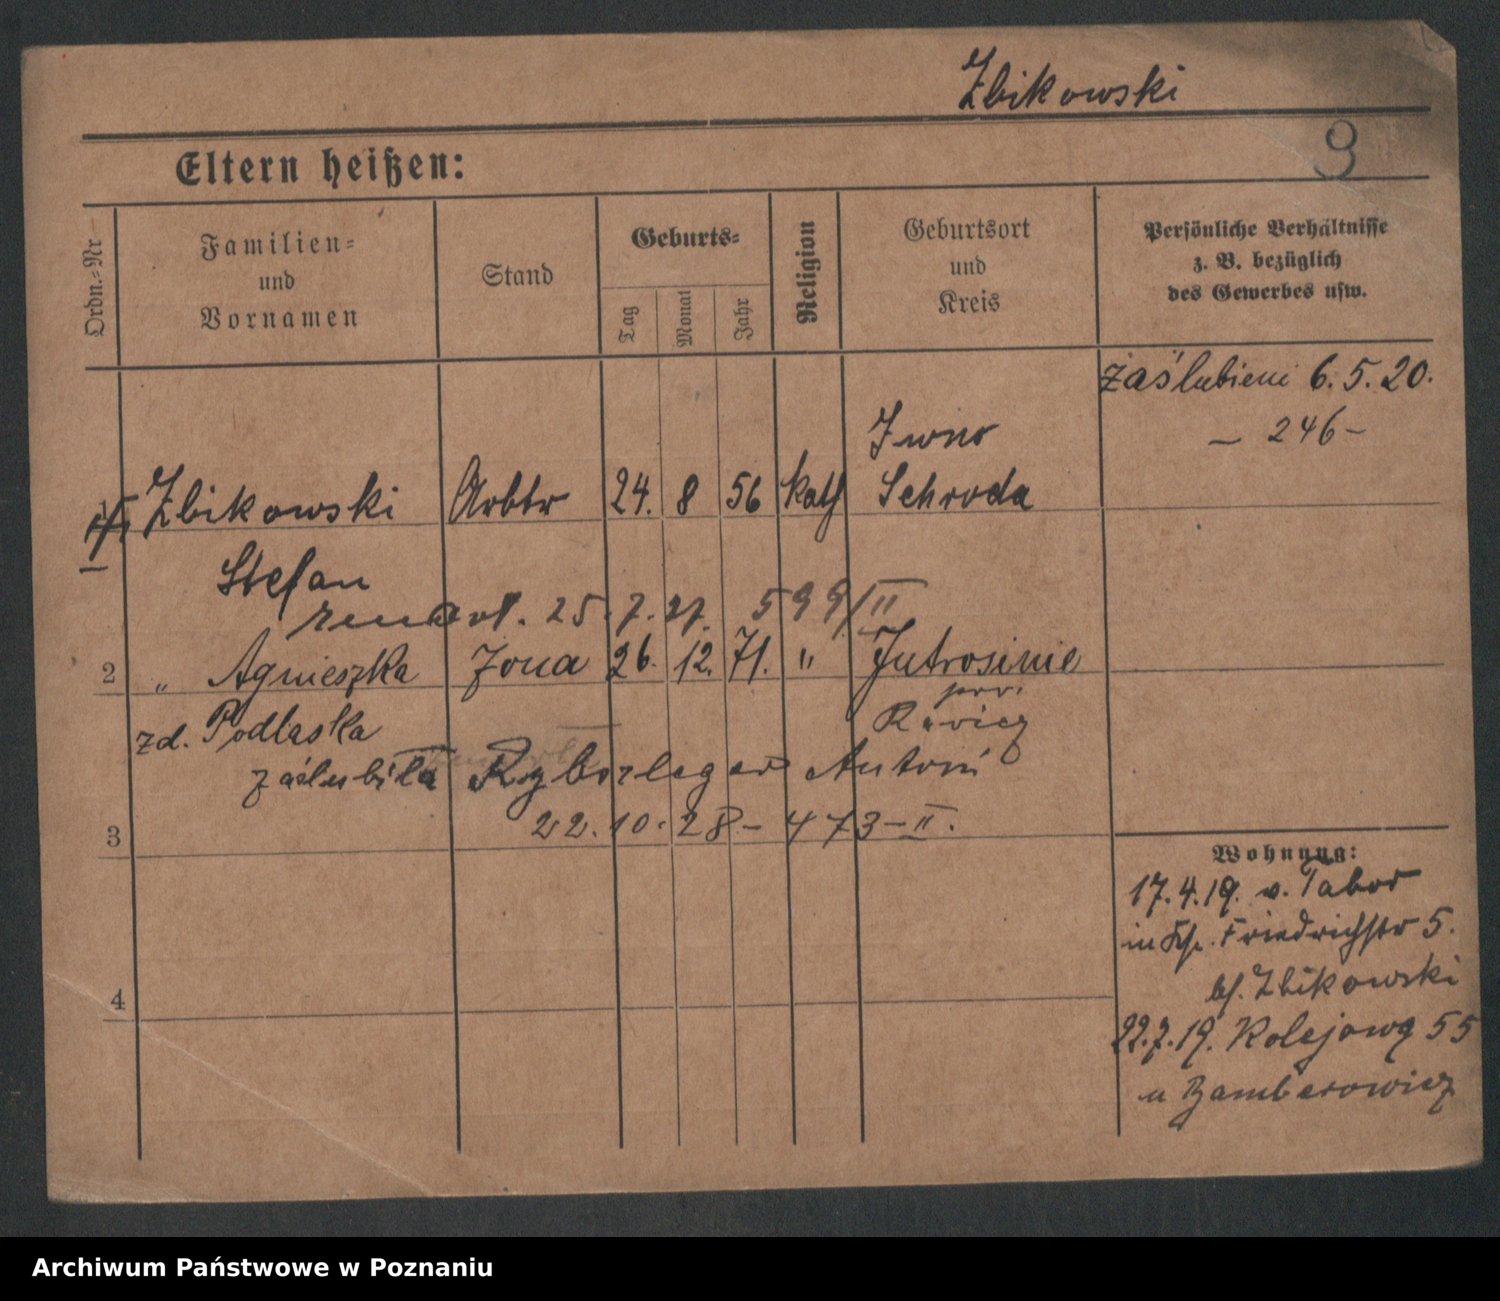 Zbikowski
9
Eltern heißen:
Ordn.-Nr
Familien-
und
Vornamen
Stand
Geburts-
Tag
Monat
Jahr
Religion
Geburtsort
und
Kreis
Persönliche Verhältnisse
z. B. bezüglich
des Gewerbes usw.
zaślubieni 6.5.20.
— 246 —
Iwno
Zbikowski Arbtr 24. 8 56 kath Schroda
Stefan
25.7.27. 599/II
2 " Agnieszka żona 26. 12. 71. " Jutrosinie
pow.
zd. Podlaska
zaślubiła Antoni
22.10.28 – 473 – II.
3
4
Wohnung:
17.4.19. v. Tabor
in Friedrichstr 5.
bf. Zbikowski
22.7.19. Kolejowa 55
u Bamberowicz
Archiwum Państwowe w Poznaniu